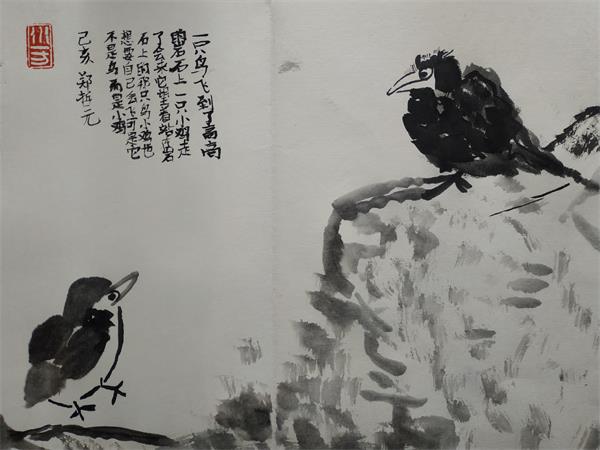 一只鸟飞到了高高
的岩石上一只小鸡走
了过来它望着站在岩
石上的那只鸟小鸡也
想要自己会飞可是它
不是鸟而是小鸡
己亥 郑